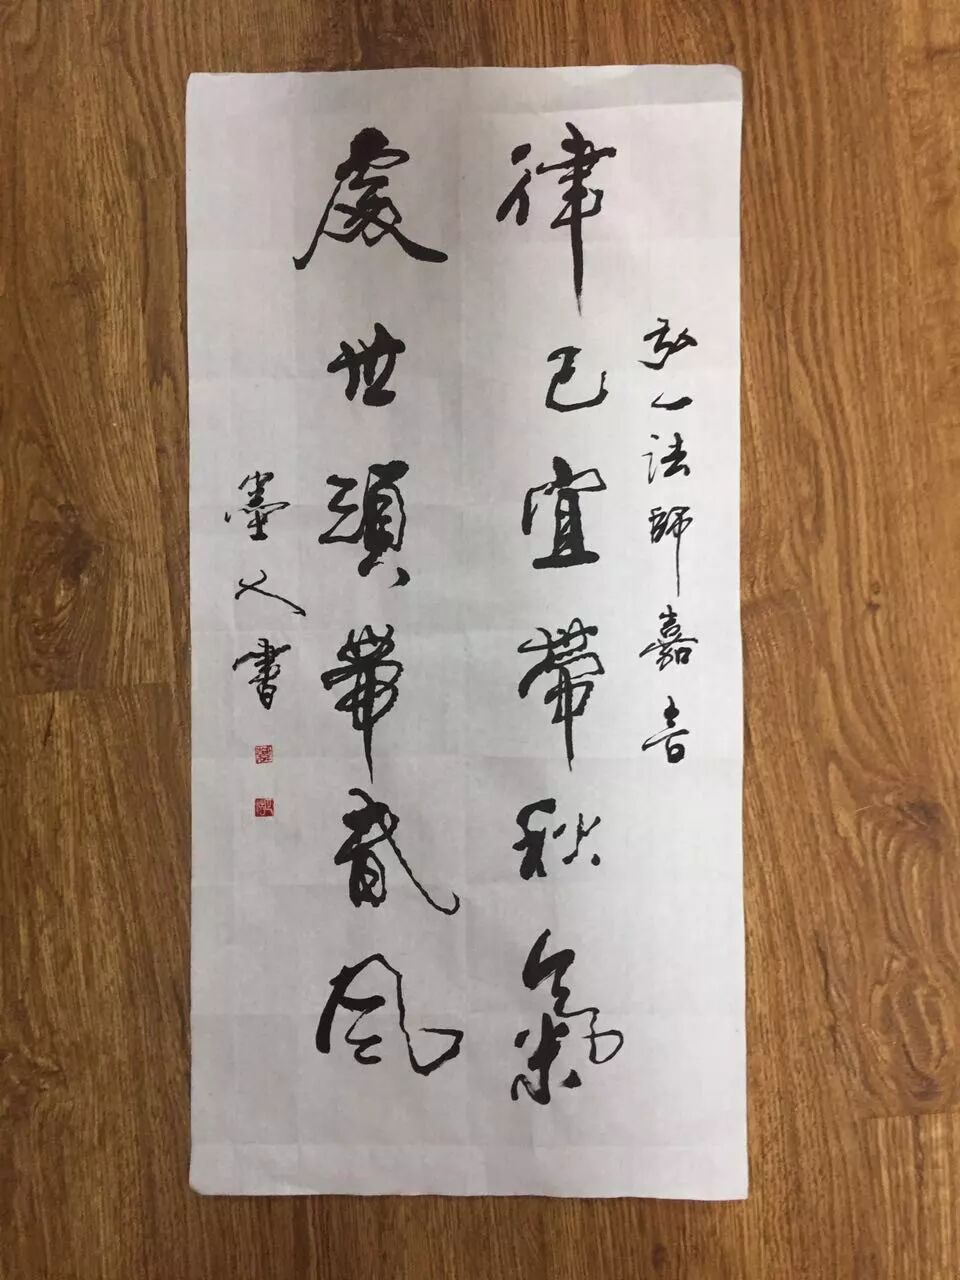 弘一法師嘉言
律己宜帶秋氣
處世須帶春風
墨人書